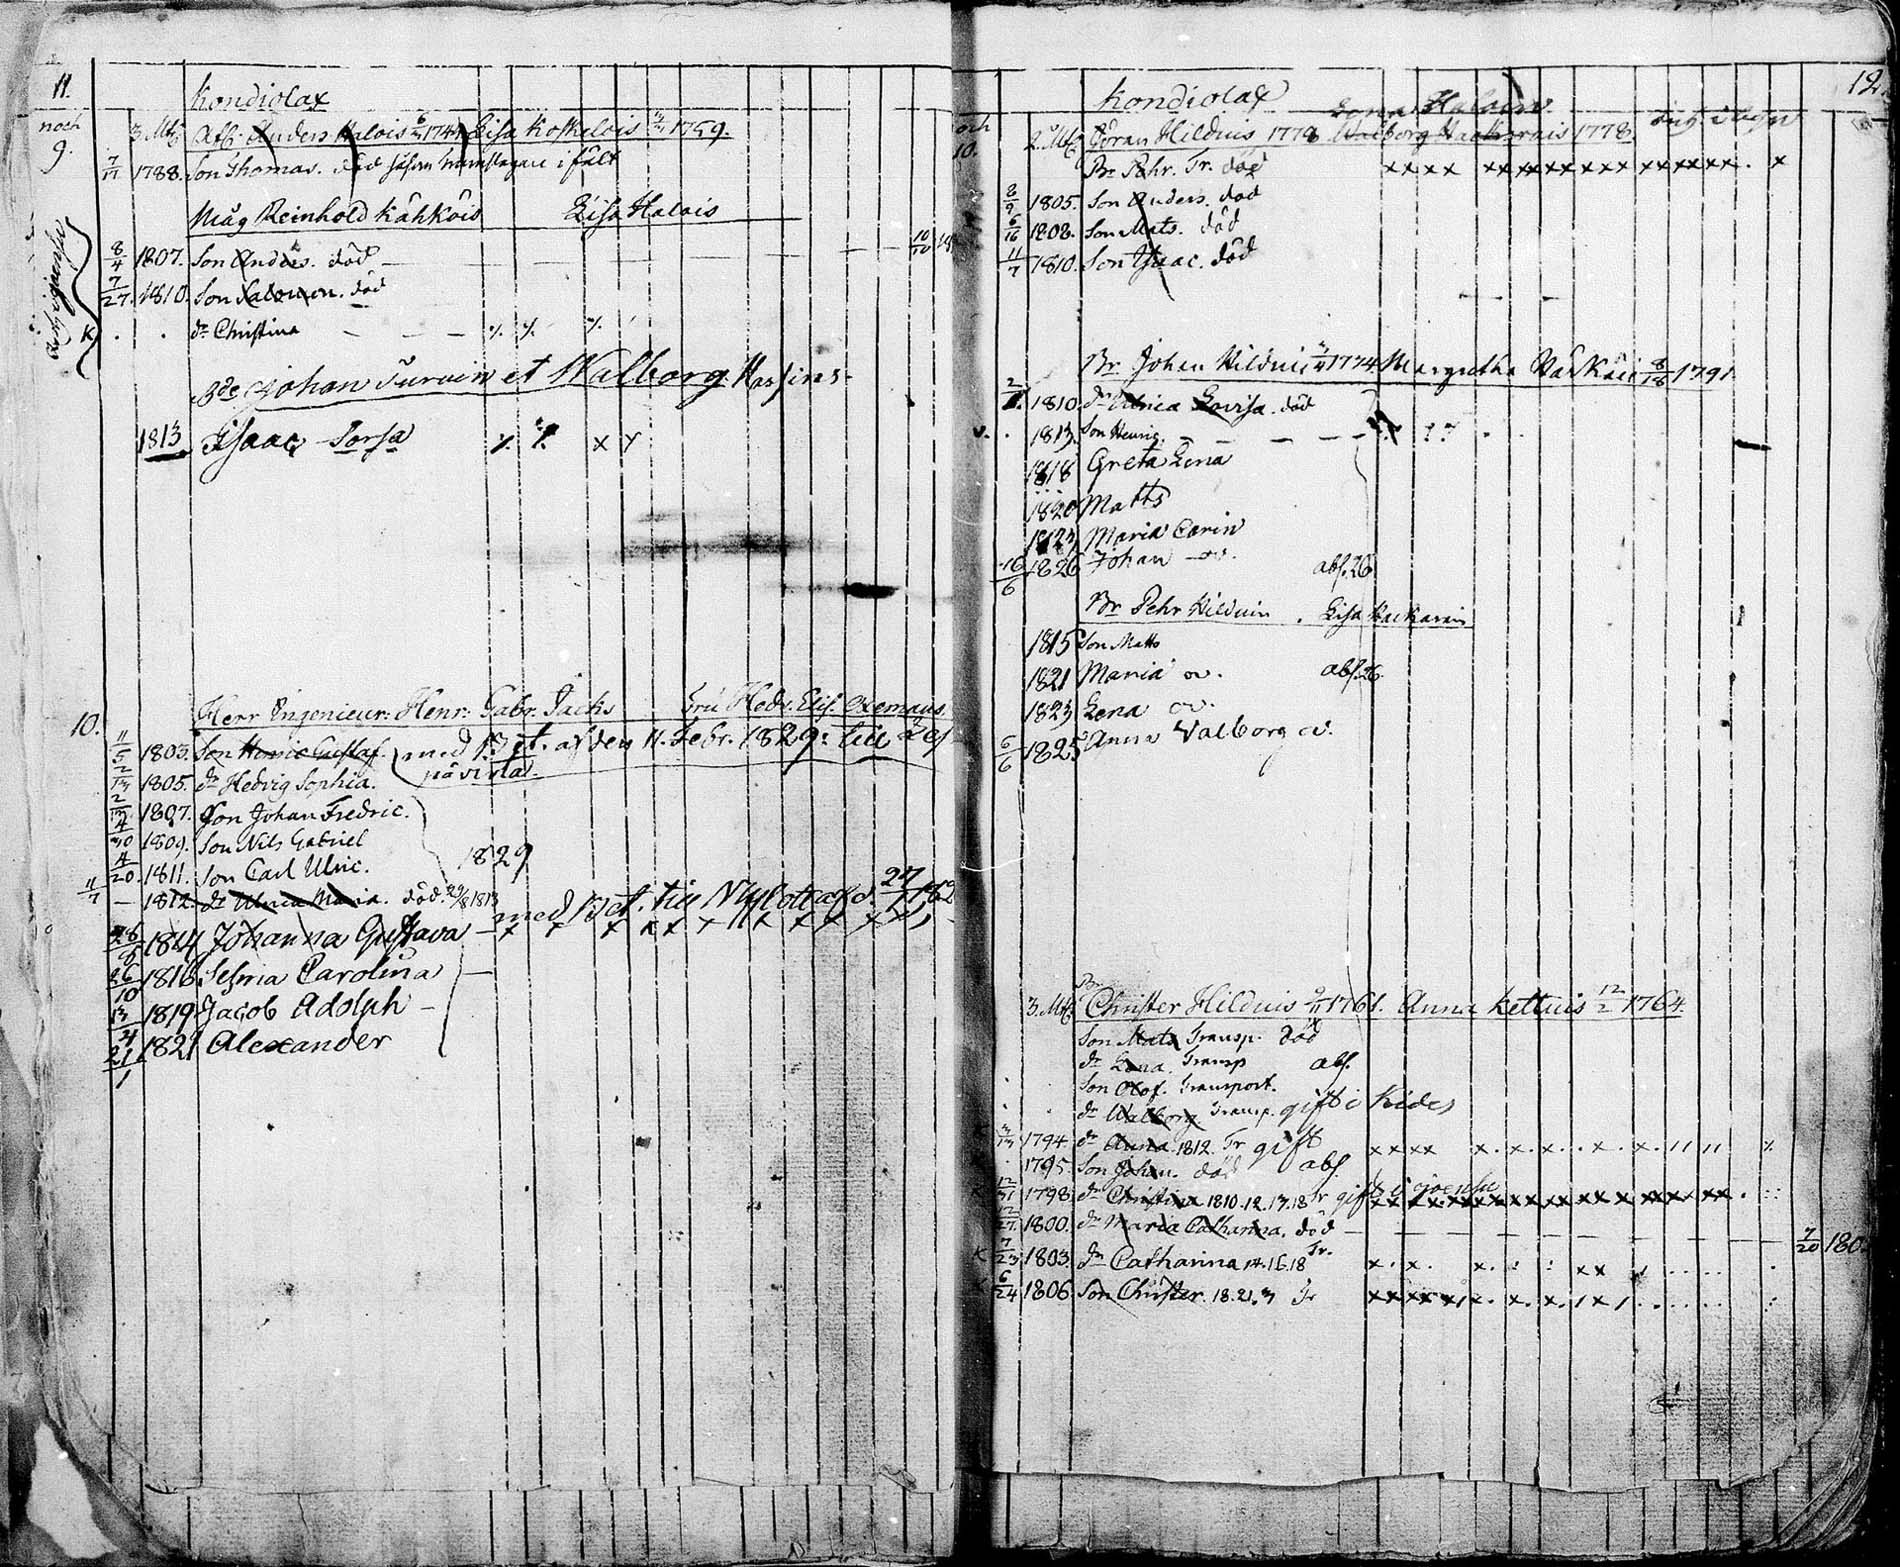 11.
Kondiolax
noch
9.
3. Mtl. Anders Halois 1744 Lisa Koskelois 1759.
7/11 1788. Son Thomas. död såsom i fält
Måg Reinhold Kåhköis Lisa Halois
8/4 1807. Son Anders. död
7/27. 1810. Son Salomon. död
K dr Christina
Johan Turuin et Walborg
1813 Isaac Sorsa
10.
Herr Ingenieur: Henr: Gabr. Jacks Fru Hedv. Elis. Oxemans
11/5 1803. Son Henric Gustaf. med Bet. af den 11. Febr. 1829. till
2/13 1805. dr Hedvig Sophia.
1807. Son Johan Fredric.
4/30 1809. Son Nils Gabriel
4/20. 1811. Son Carl Ulric.
1829
11/7 1812. dr Ulrica Maria. död. 1813
med Bet. till Nyslott af d.
26/8 1814 Johanna Gustava
26/10 1816 Carolina
13/4 1819 Jacob Adolph
21/1 1821 Alexander
12.
Kondiolax
Lena Haloin
noch
10.
2. Mtl. Göran Hilduis 1778 Walborg Hackarais 1778.
Br. Pehr. Fr. död
8/9 1805. Son Anders. död
6/16 1808. Son Mats. död
11/7 1810. Son Isaac. död
Br Johan Hilduin 1774 Margretha 8/18 1791
1810. dr Ulrica Lovisa. död
1813. Son Henric.
1818 Greta Lena
1820 Matts
1823 Maria Carin
16/6 1826 Johan abs. 26
Br Pehr Hilduin Lisa Hackarain
1815 Son Matts
1821 Maria abs. 26
1823 Lena
6/6 1825 Anna Valborg
3. Mtl. Christer Hilduis 1761. Anna Kettuis 12/2 1764.
Son Mats Transp. död
dr Lena. Transp abs.
Son Olof. Transport.
dr Walborg Transp. gift i Kides
3/13 1794 dr Anna. 1812. Fr gift
1795. Son Johan. död abs.
12/31 1798. dr Christina 1810. 12. 17. 18 Fr gift i
12/27. 1800. dr Maria Catharina. död
7/23 1803. dr Catharina 14. 16. 18 Fr.
6/24 1806. Son Christer. 18. 21. Fr